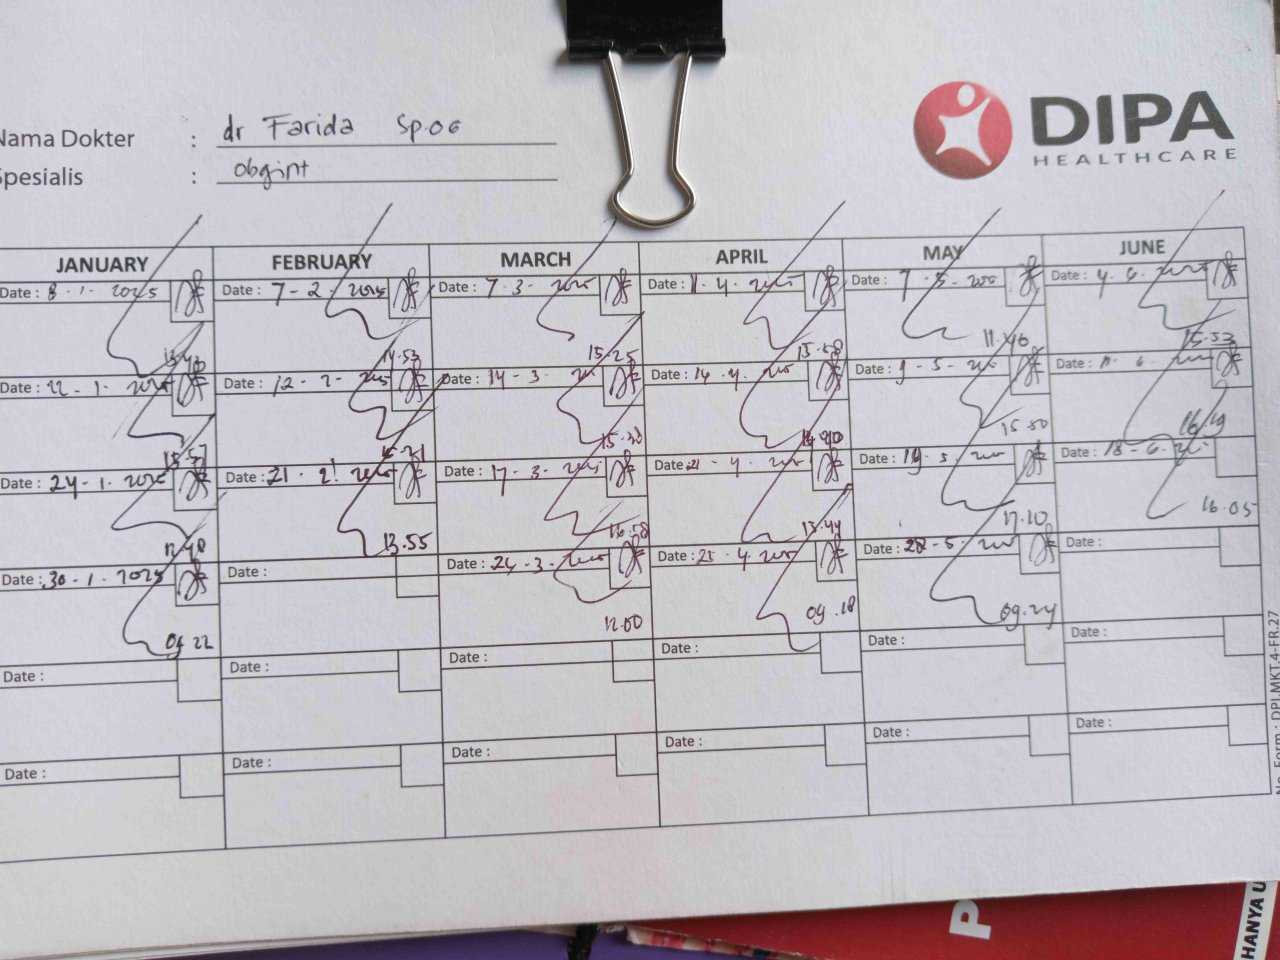 DIPA
HEALTHCARE
Nama Dokter : dr Farida Sp.OG
Spesialis : Obgint
JANUARY FEBRUARY MARCH APRIL MAY JUNE
Date : 8 - 1 - 2025 Date : 7 - 2 - 2025 Date : 7 - 3 - Date : - 4 - Date : 7 - 5 - Date : 4 - 6 -
14.53 15.25 15.58 11.46 15.53
Date : 22 - 1 - 2025 Date : 12 - 2 - Date : 14 - 3 - Date : 14 - 4 - Date : 9 - 5 - Date : - 6 -
15.57 15.50 16.19
Date : 24 - 1 - 2025 Date : 21 - 2 - Date : 17 - 3 - Date : 21 - 4 - Date : 19 - 5 - Date : 18 - 6 -
13.55 13.44 17.10 16.05
Date : 30 - 1 - 2025 Date : Date : 24 - 3 - Date : 25 - 4 - Date : 28 - 5 - Date :
09.22 12.00 09.18 09.24
Date : Date : Date : Date : Date : Date :
Date : Date : Date : Date : Date : Date :
No. Form : DPI.MKT.4-FR.27
P
HANYA U